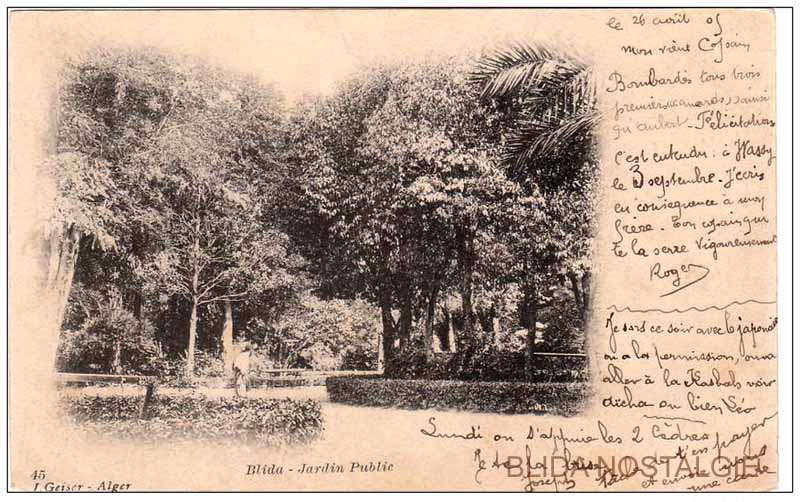 le 26 avril 05
Mon vieux Copain
Bombardés tous trois
premiers canards, ainsi
qu'aubert - Félicitations
c'est entendu : à Wassy
le 3 septembre. J'écris
en conséquence à mon
frère. Ton copain qui
te la serre vigoureusement
Roger
Je sors ce soir avec le japonais
on a les permissions, on va
aller à la Kasbah voir
aïcha ou bien Léo
Lundi on s'appuie les 2 Cèdres
Je te la
Joseph
et envoie
une carte
Blida - Jardin Public
45
J. Geiser - Alger
BLIDA NOSTALGIE